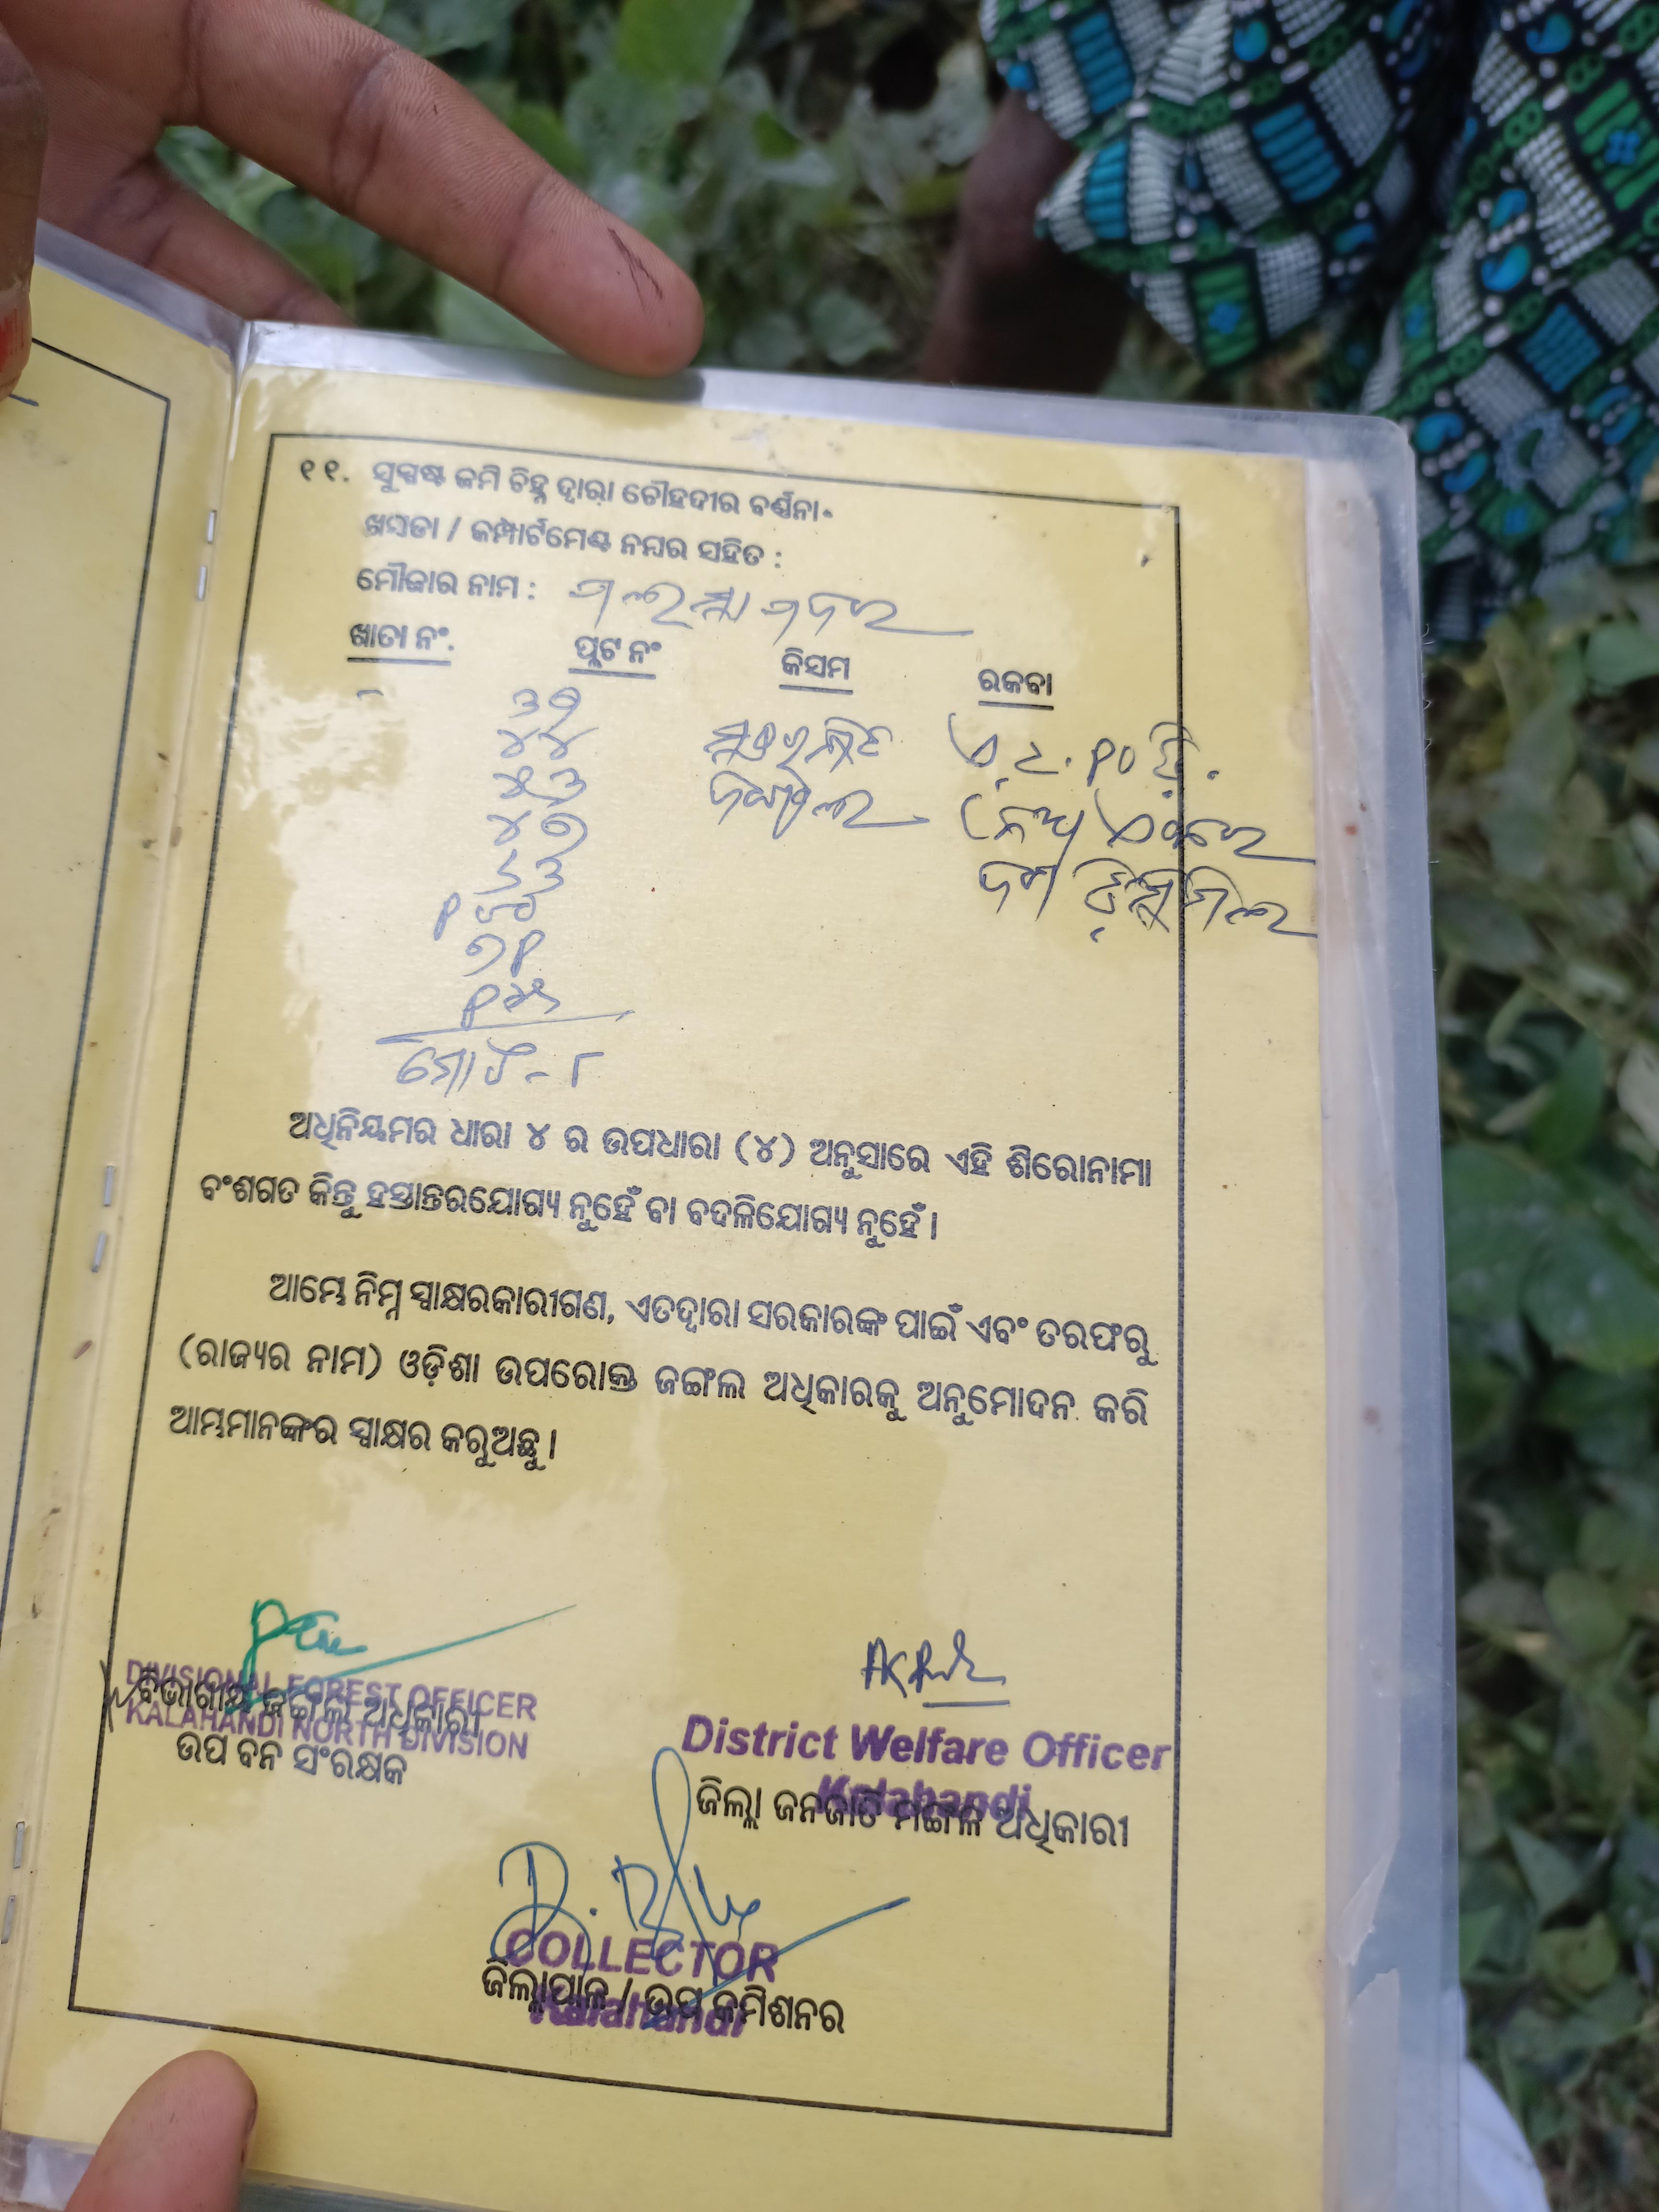 ୧୧. ସୁସ୍ପଷ୍ଟ ଜମି ଚିହ୍ନ ଦ୍ୱାରା ଚୌହଦୀର ବର୍ଣ୍ଣନା.
ଖସଡା / କମ୍ପାର୍ଟମେଣ୍ଟ ନମ୍ବର ସହିତ :
ମୌଜାର ନାମ :
ଖାତା ନଂ. ପ୍ଲଟ ନଂ କିସମ ରକବା
୩୨
୪୪
୪୭
୭୧
ମୋଟ - ୮
ଅଧିନିୟମର ଧାରା ୪ ର ଉପଧାରା (୪) ଅନୁସାରେ ଏହି ଶିରୋନାମା
ବଂଶଗତ କିନ୍ତୁ ହସ୍ତାନ୍ତରଯୋଗ୍ୟ ନୁହେଁ ବା ବଦଳିଯୋଗ୍ୟ ନୁହେଁ ।
ଆମ୍ଭେ ନିମ୍ନ ସ୍ୱାକ୍ଷରକାରୀଗଣ, ଏତଦ୍ୱାରା ସରକାରଙ୍କ ପାଇଁ ଏବଂ ତରଫରୁ
(ରାଜ୍ୟର ନାମ) ଓଡ଼ିଶା ଉପରୋକ୍ତ ଜଙ୍ଗଲ ଅଧିକାରକୁ ଅନୁମୋଦନ କରି
ଆମ୍ଭମାନଙ୍କର ସ୍ୱାକ୍ଷର କରୁଅଛୁ ।
DIVISIONAL FOREST OFFICER
ବିଭାଗୀୟ ଜଙ୍ଗଲ ଅଧିକାରୀ
KALAHANDI NORTH DIVISION
ଉପ ବନ ସଂରକ୍ଷକ
District Welfare Officer
Kalahandi
ଜିଲ୍ଲା ଜନଜାତି ମଙ୍ଗଳ ଅଧିକାରୀ
COLLECTOR
ଜିଲ୍ଲାପାଳ / ଉପ କମିଶନର
Kalahandi